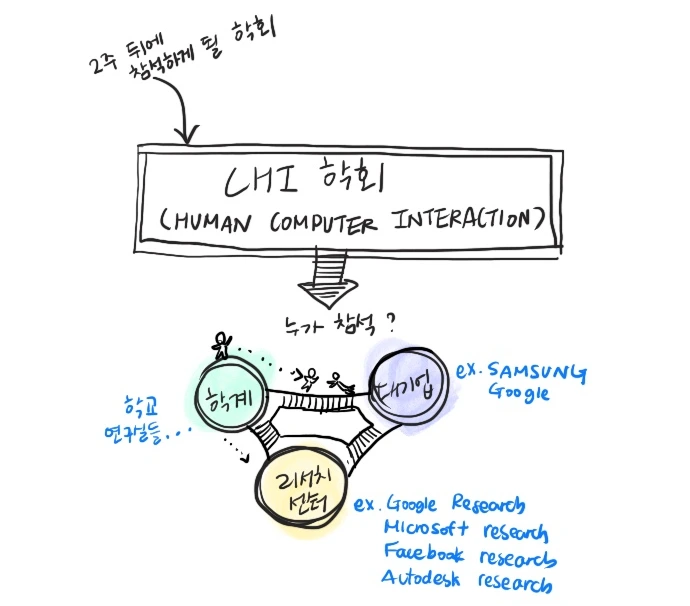 2주 뒤에
참석하게 될 학회
CHI 학회
(HUMAN COMPUTER INTERACTION)
누가 참석?
학계
대기업
ex. SAMSUNG
Google
학교
연구실들...
리서치
센터
ex. Google Research
Microsoft research
Facebook research
Autodesk research